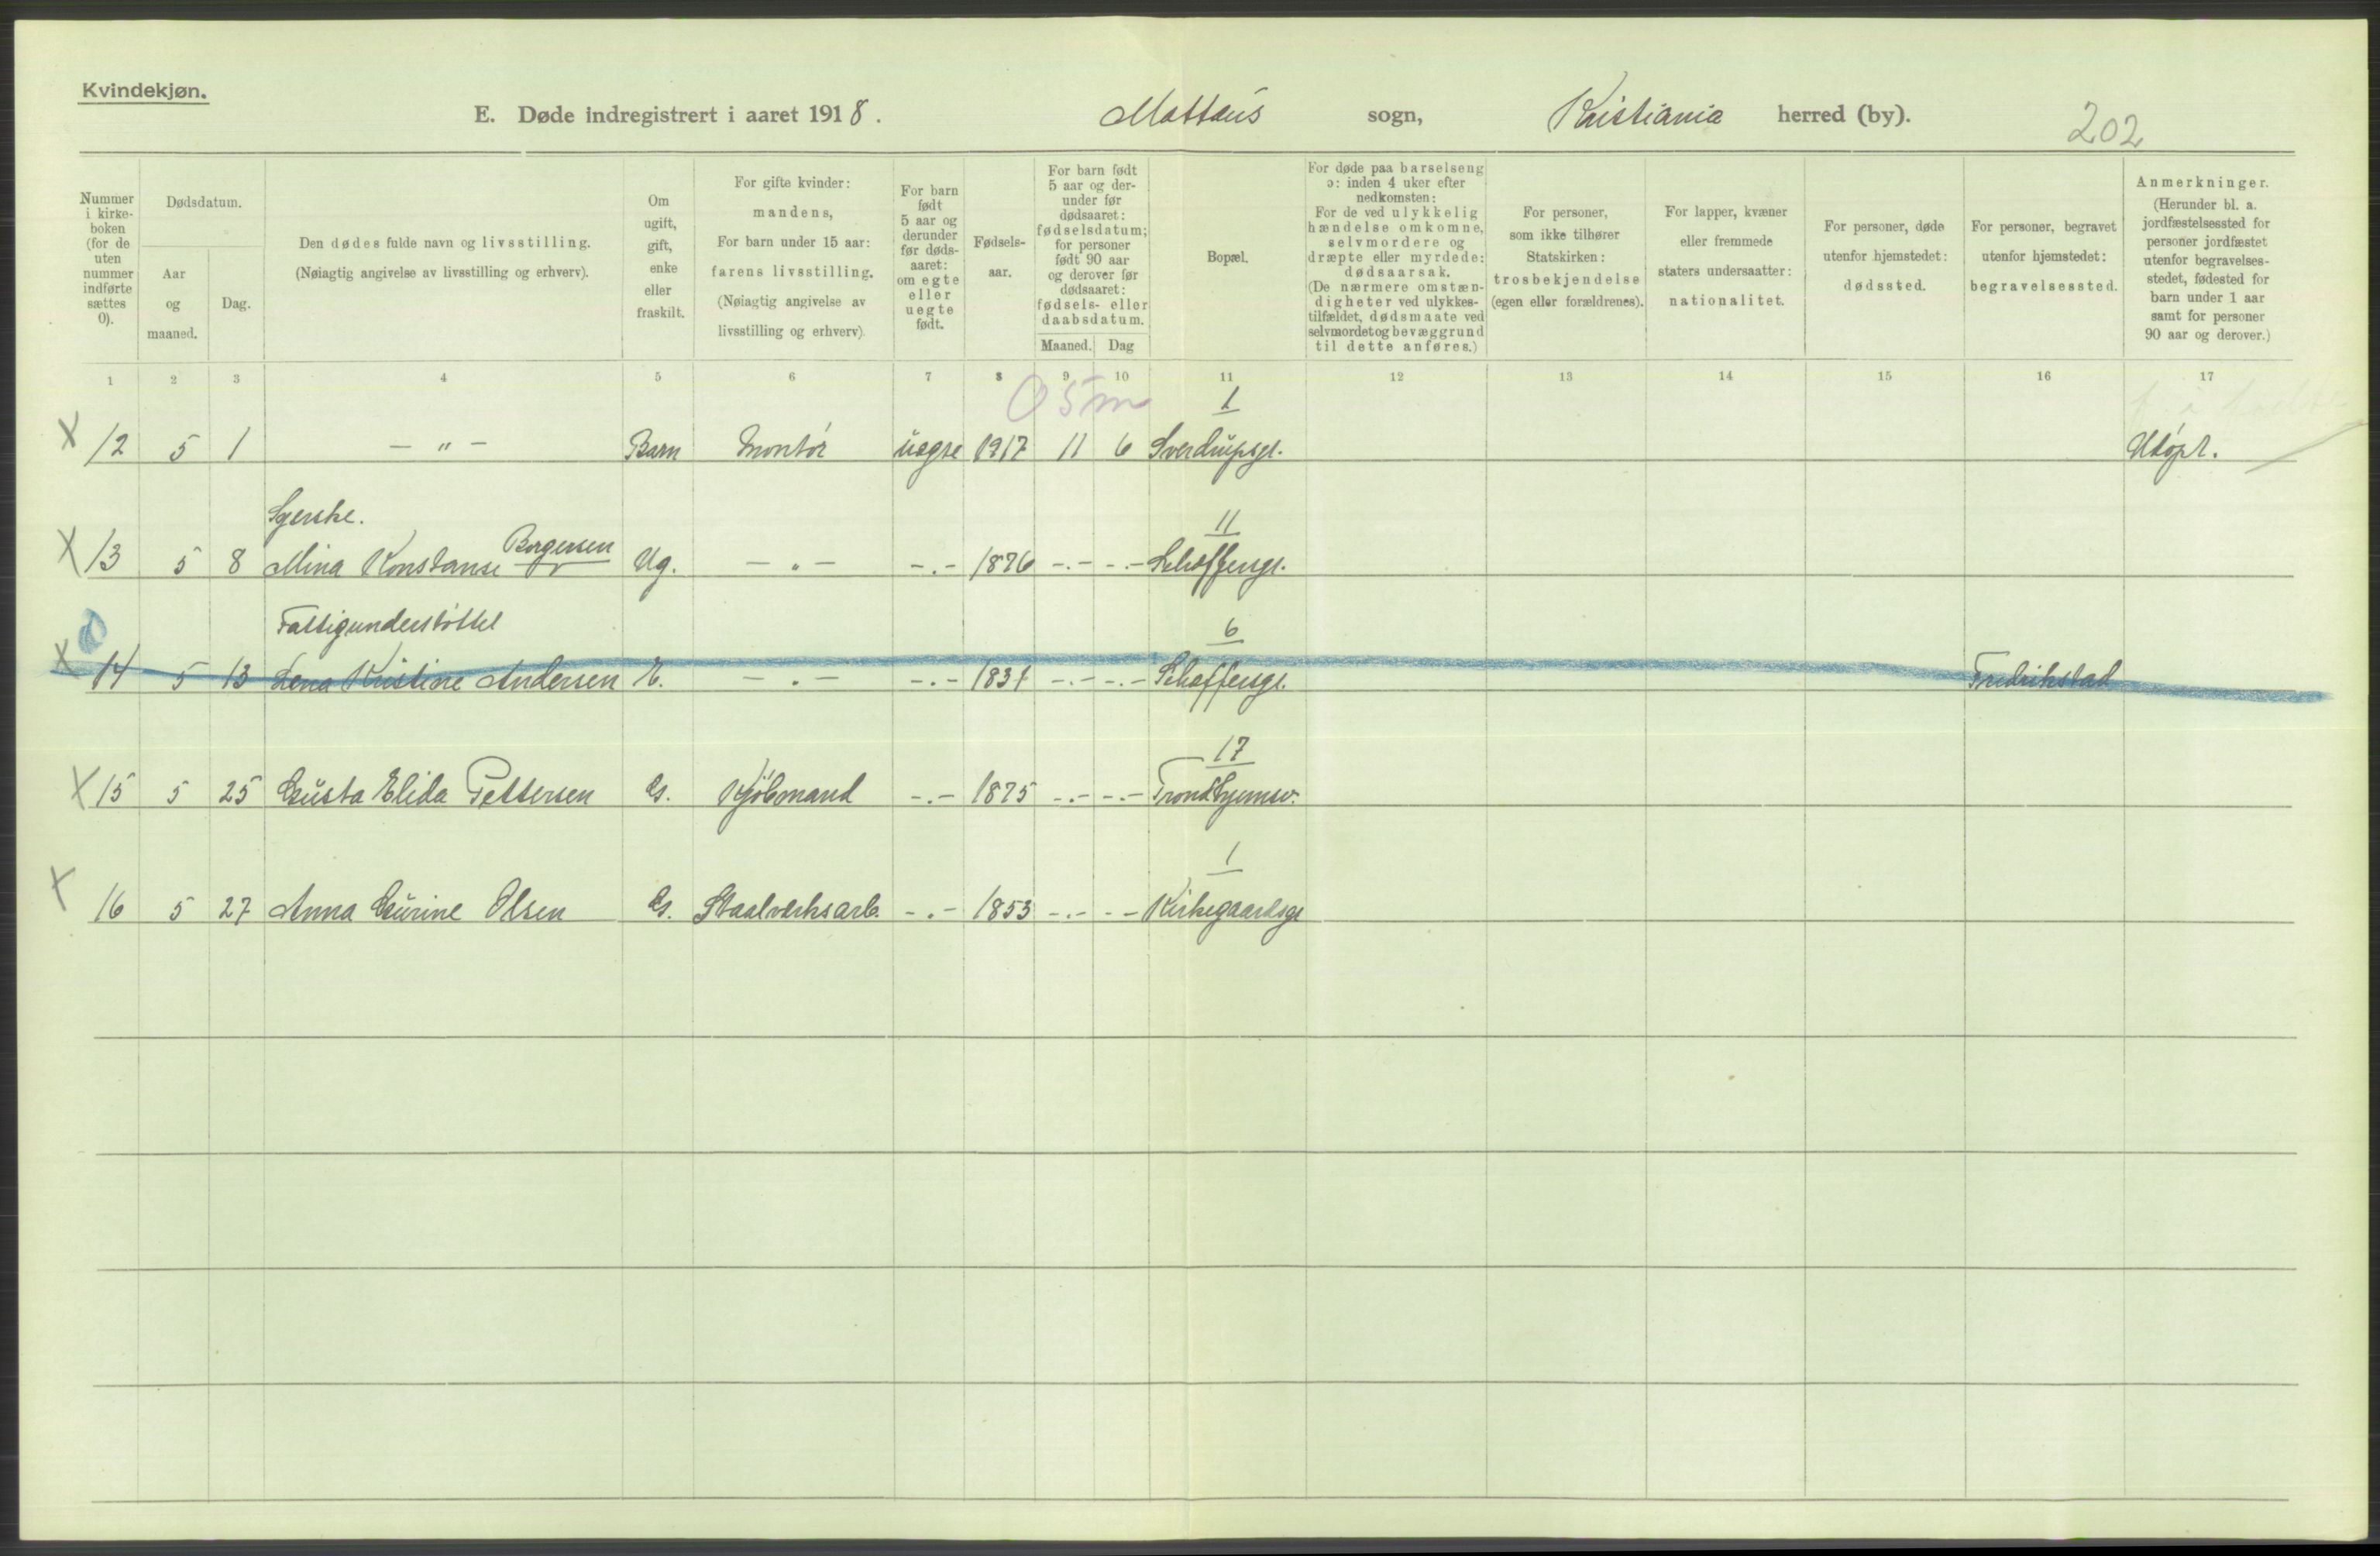 Kvindekjøn.
E. Døde indregistrert i aaret 1918. Mattæus sogn, Kristiania herred (by). 202
Nummer i kirkeboken (for de uten nummer indførte sættes 0).
Dødsdatum.
Aar og maaned.
Dag.
Den dødes fulde navn og livsstilling.
(Nøiagtig angivelse av livsstilling og erhverv).
Om ugift, gift, enke eller fraskilt.
For gifte kvinder: mandens,
For barn under 15 aar: farens livsstilling.
(Nøiagtig angivelse av livsstilling og erhverv).
For barn født 5 aar og derunder før dødsaaret: om egte eller uegte født.
Fødselsaar.
For barn født 5 aar og derunder før dødsaaret: fødselsdatum; for personer født 90 aar og derover før dødsaaret: fødsels- eller daabsdatum.
Maaned. Dag
Bopæl.
For døde paa barselseng ɔ: inden 4 uker efter nedkomsten: For de ved ulykkelig hændelse omkomne, selvmordere og dræpte eller myrdede: dødsaarsak. (De nærmere omstændigheter ved ulykkestilfældet, dødsmaate ved selvmordet og bevæggrund til dette anføres.)
For personer, som ikke tilhører Statskirken: trosbekjendelse (egen eller forældrenes).
For lapper, kvæner eller fremmede staters undersaatter: nationalitet.
For personer, døde utenfor hjemstedet: dødssted.
For personer, begravet utenfor hjemstedet: begravelsessted.
Anmerkninger. (Herunder bl. a. jordfæstelsessted for personer jordfæstet utenfor begravelsesstedet, fødested for barn under 1 aar samt for personer 90 aar og derover.)
1 2 3 4 5 6 7 8 9 10 11 12 13 14 15 16 17
0 5 m
1
X 12 5 1 — " — Barn Montør uegte 1917 11 6 Sverdrupsgt. Udøpt.
Syerske. 11
X 13 5 8 Mina Konstanse Borgersen Ug. — " — -.- 1876 -.- -.- Schoffengt.
Fattigunderstøttet 6
X 14 5 13 Lena Kristine Andersen E. — . — -.- 1831 -.- -.- Schoffengt. Fredrikstad
17
X 15 5 25 Gusta Elida Pettersen G. Kjøbmand -.- 1875 -.- -.- Trondhjemsv.
1
X 16 5 27 Anna Gurine Olsen G. Staalverksarb. -.- 1853 -.- -- Kirkegaardsgt